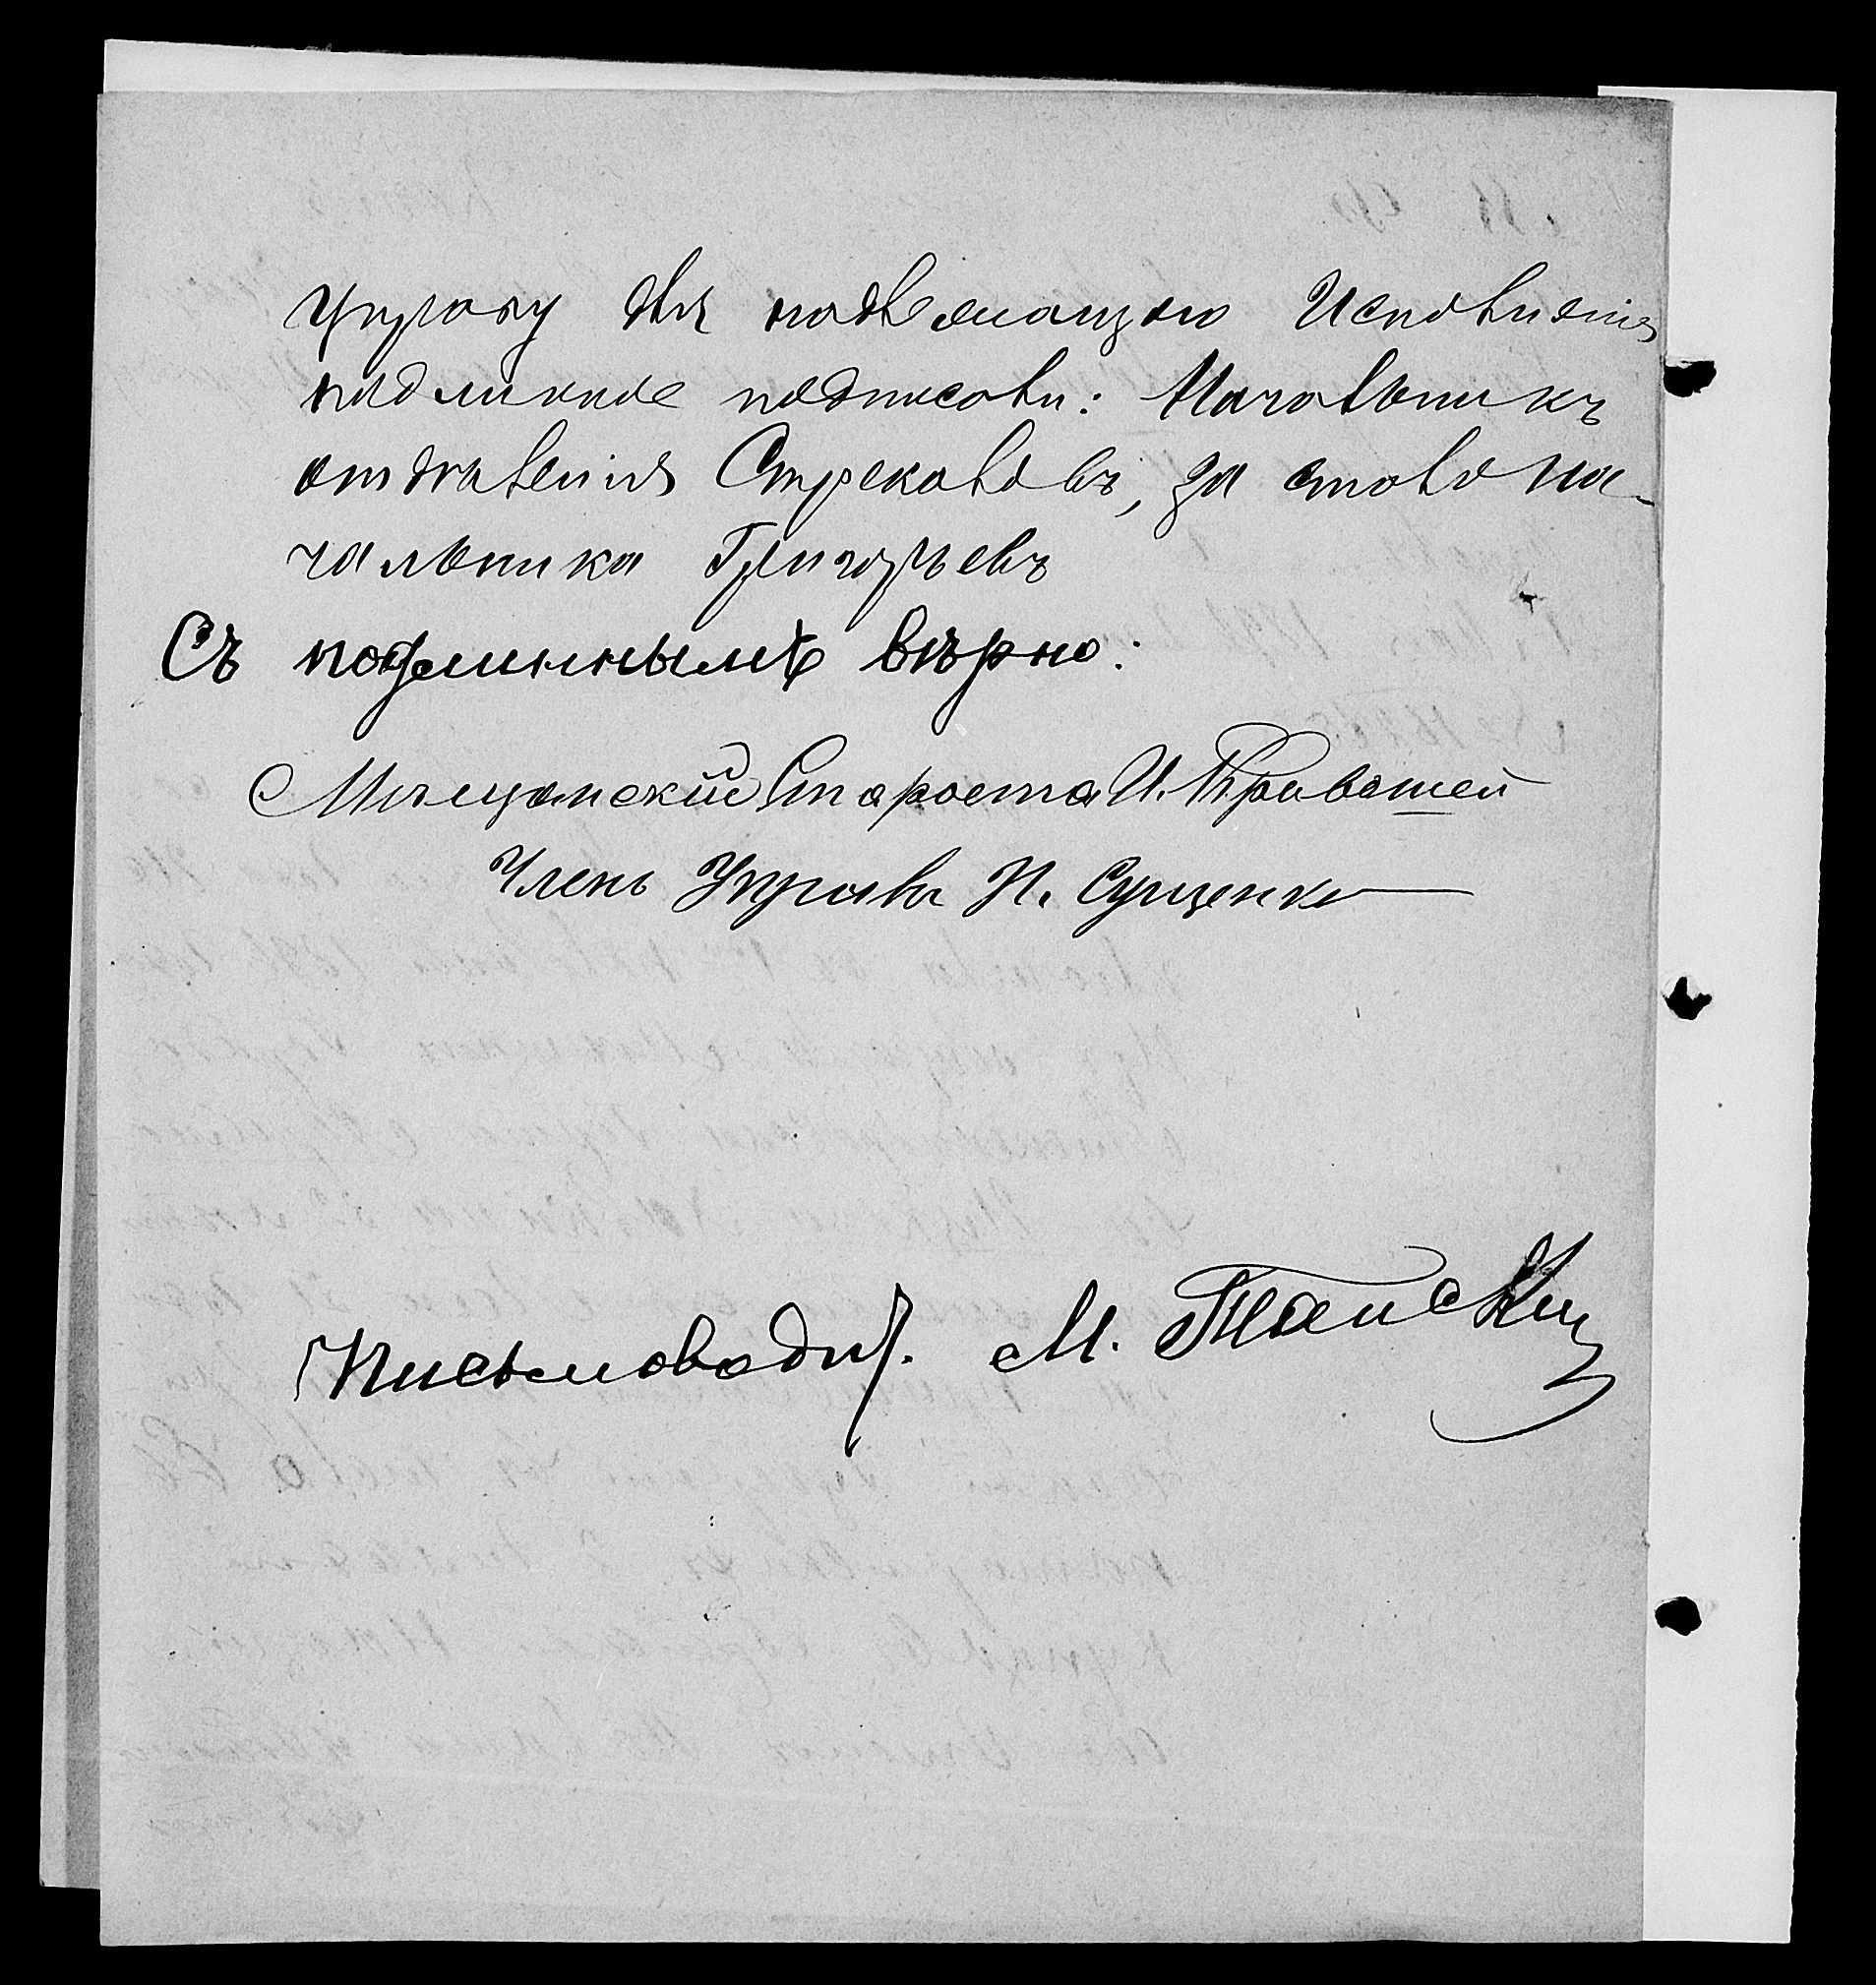 Управу для надлежащаго Исполненія
подлинное подписали: Начальникъ
отдѣленія Стрекаловъ, за столона-
чальника Григорьевъ
Съ подлиннымъ вѣрно:
Мѣщанскій Староста И.
Членъ Управы И. Сущенко
Письмоводит. М.